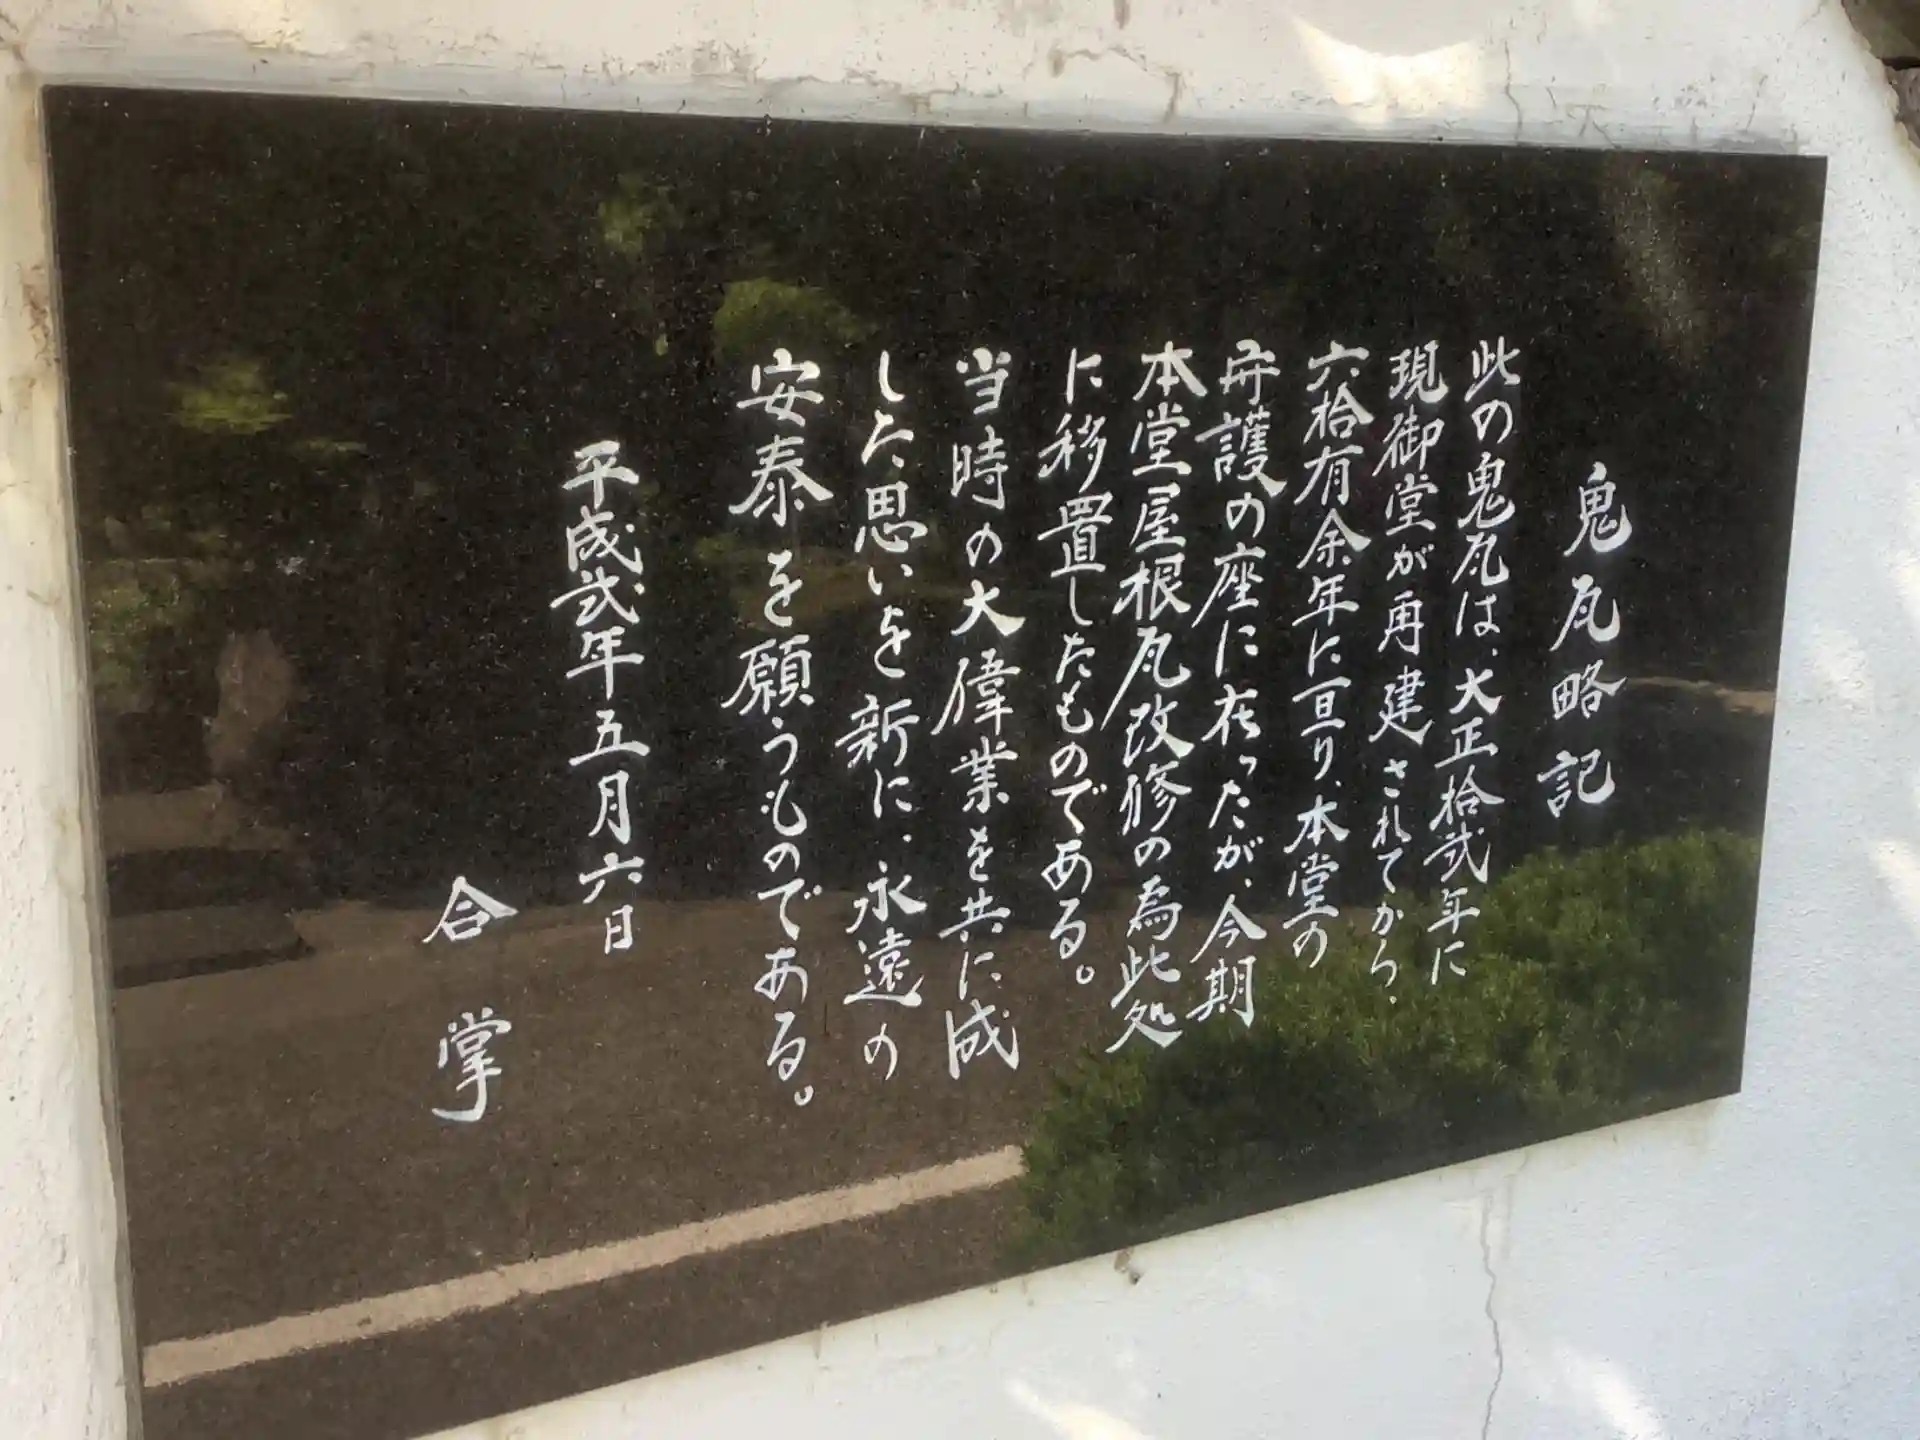 鬼瓦略記
此の鬼瓦は、大正拾弐年に
現御堂が再建されてから、
六拾有余年に亘り、本堂の
守護の座に在ったが、今期
本堂屋根瓦改修の為此処
に移置したものである。
当時の大偉業を共に成
した思いを新に、永遠の
安泰を願うものである。
平成弐年五月六日
合掌